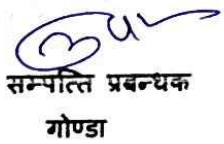 सम्पत्ति प्रबन्धक
गोण्डा